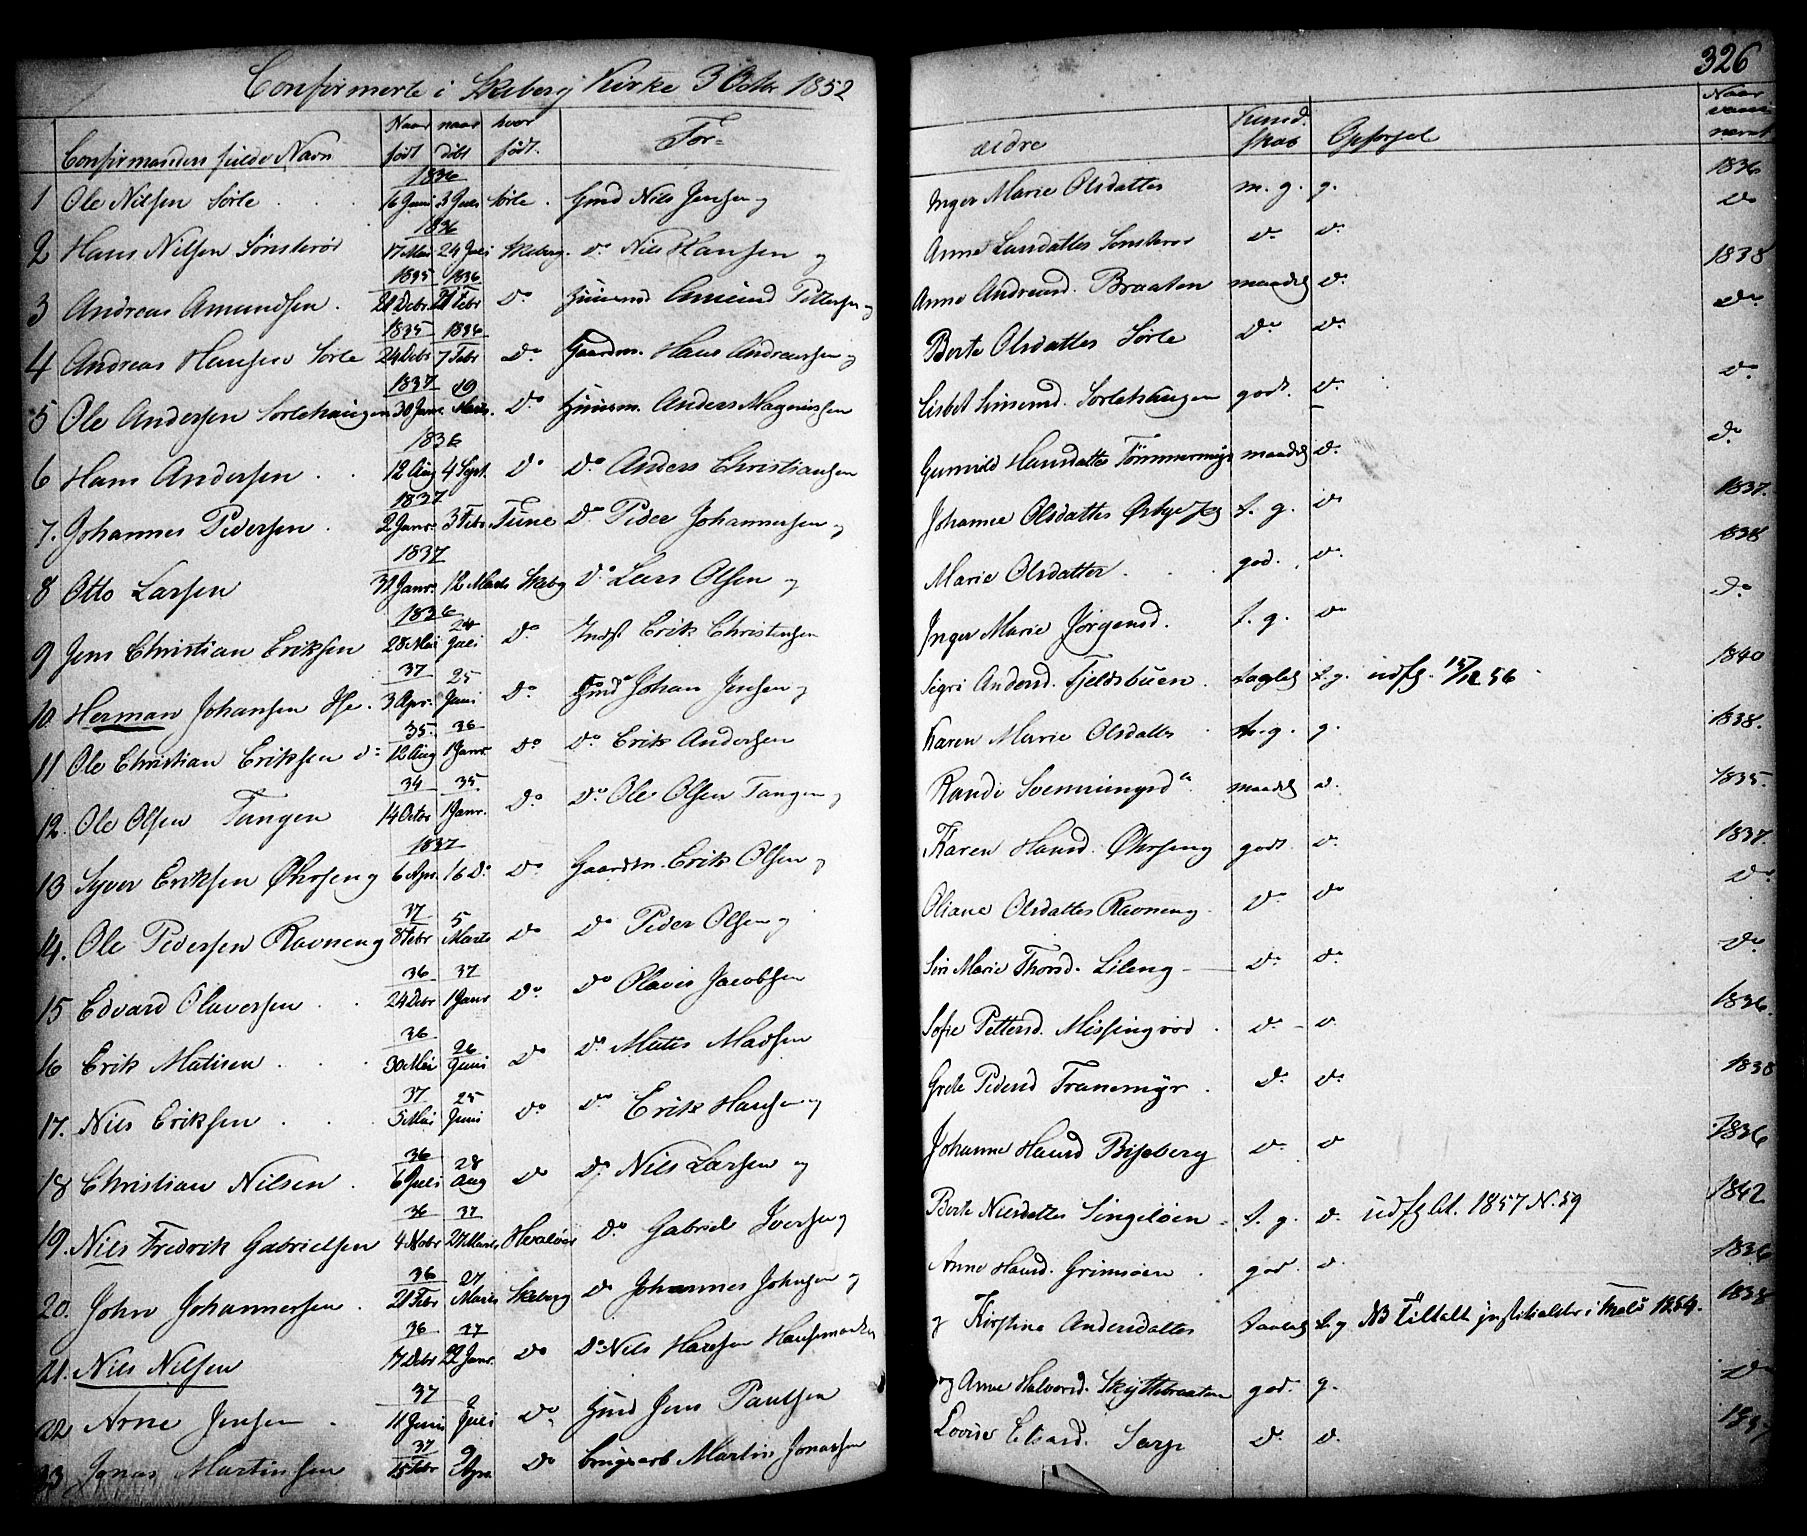 326
Confirmerte i Skeberg Kirke 3 Octbr 1852
Confirmandens fulde Navn Naar født naar døbt hvor født. For- ældre Kundskab Opførsel Naar vaccineret
1836
1 Ole Nilsen Sørle 16 Juni 3 Juli Sørle Gmd Nils Jensen og Inger Marie Olsdatter m. g. g. 1836
1836
2 Hans Nilsen Sønsterød 17 Mai 24 Juli Skeberg. do Nils Hansen og Anne Larsdatter Sønsterød do do do
1835 1836
3 Andreas Amundsen 21 Debr. 21 Febr do Huusmd Amund Pettersen og Anne Andreasd. Braaten maadel do 1838
1835 1836
4 Andreas Hansen Sørle 24 Debr 7 Febr do Gaardm. Hans Andreassen og Berte Olsdatter Sørle do do do
1837 19
5 Ole Andersen Sørlehaugen 30 Janr. Marts. do Huusm. Anders Magnussen Lisbet Simensd. Sørlehaugen godt. do do
1836
6 Hans Andersen 12 Aug 4 Sept. do do Anders Christiansen Gunnild Hansdatter Tømmermyr maadel do do
1837
7. Johannes Pedersen 2 Janr. 3 Febr Tune do Peder Johannesen og Johanne Olsdatter t. g. do 1837.
1837
8 Otto Larsen 31 Janr. 12 Marts Skeberg do Lars Olsen og Marie Olsdatter god. do 1838
1836 24
9 Jens Christian Eriksen 28 Mai Juli do Indst Erik Christensen Inger Marie Jørgensd. t. g. do do
37 25
10. Herman Johansen 3 Apr. Juni do Gmd Johan Jensen og Sigri Andersd. Fjeldsbuen t. g. udfl. 15/12 56 1840
35. 36
11 Ole Christian Eriksen do 12 Aug 1 Janr. do do Erik Andersen Karen Marie Olsdatter g. 1838.
34 35
12. Ole Olsen Tangen 14 Octbr 1 Janr. do do Ole Olsen Tangen og Randi Svenningsd maadel do. 1835.
1837
13 Syver Eriksen Øhrseng 6 Apr. 16 do do Gaardm. Erik Olsen og Karen Hansd. Øhrseng godt do 1837.
37 5
14. Ole Pedersen Ravneng 8 Febr Marts do do Peder Olsen og Oliane Olsdatter Ravneng do do do
36 37
15 Edvard Olavesen 24 Debr 1 Janr do do Olaves Jacobsen Siri Marie Thorsd. Lileng do do do
36 26
16 Erik Matisen 30 Mai Juni do do Matis Madsen Sofie Pettersd. Missingrød do do 1836.
37 25
17. Nils Eriksen 5 Mai Juni do do Erik Hansen og Grete Pedersd Tranemyr do do 1838
36 28
18 Christian Nilsen 6 Juli Aug do do Nils Larsen og Johanne Hansd Bisseberg do do 1836
36 37
19. Nils Fredrik Gabrielsen 4 Nobr 27 Marts Hvaløer do Gabriel Iversen og Berte Nilsdatter Singeløen t. g. do udfl. 1857 N. 59 1842
36 27
20. John Johannesen 21 Febr Marts Skeberg do Johannes Johnsen og Anne Hansd. Grimsøen god. do 1836
36 37
21. Nils Nilsen 17 Debr 22 Janr. do do Nils Hansen og Kirstine Andersdatter t. g NB tiltalt 1854. 1838
37 2
22 Arne Jensen 11 Juni Juli do Gmd Jens Paulsen og Anne Halvorsd. Skyttebraaten god. g. do
37 9
23 Jonas Martinsen 15 Febr Apr. do Martin Jonassen Lovise Sarp do do